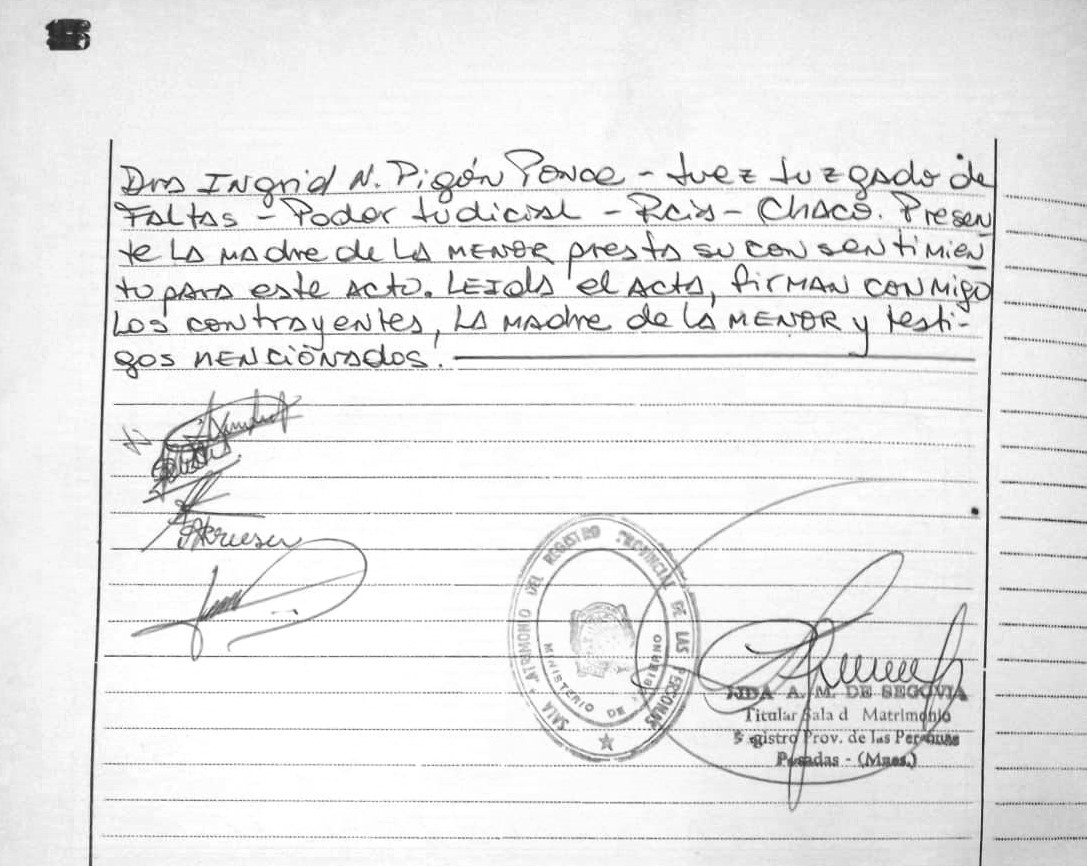 Dra Ingrid N. Pigón Ponce - Juez Juzgado de
Faltas - Poder Judicial - Pcia - Chaco. Presen
te la madre de la menor presta su consentimien
to para este acto. Leida el acta, firman conmigo
los contrayentes, la madre de la menor y testi-
gos mencionados.
SALA MATRIMONIO DEL REGISTRO PROVINCIAL DE LAS PERSONAS
MINISTERIO DE GOBIERNO
A. M. DE SEGOVIA
Titular Sala d Matrimonio
gistro Prov. de las Personas
Posadas - (Mnes.)